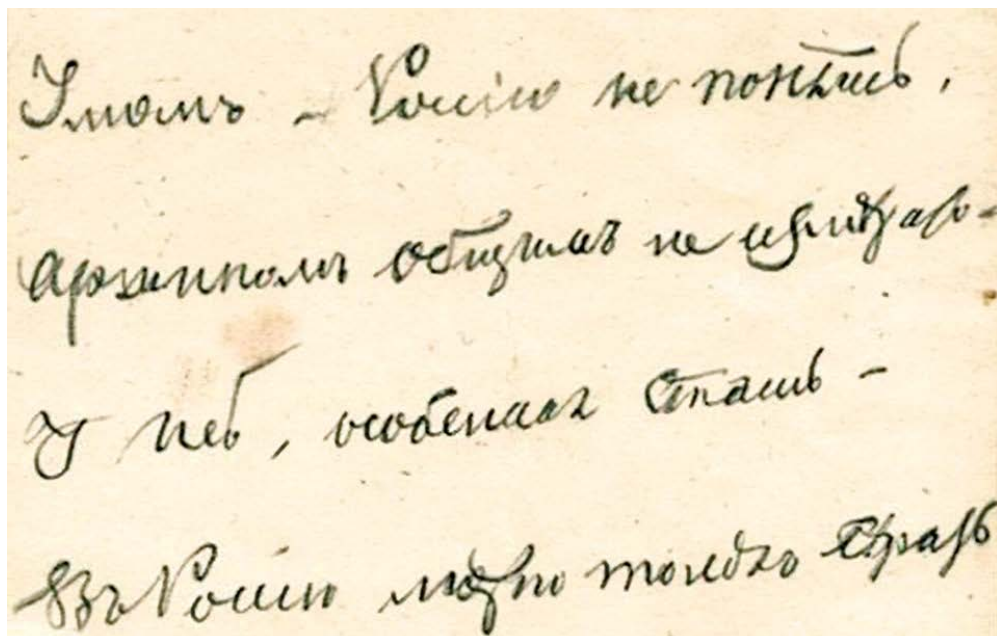 Умомъ – Россію не понять,
Аршиномъ общимъ не измѣрить –
У ней, особеная стать –
Въ Россію можно только